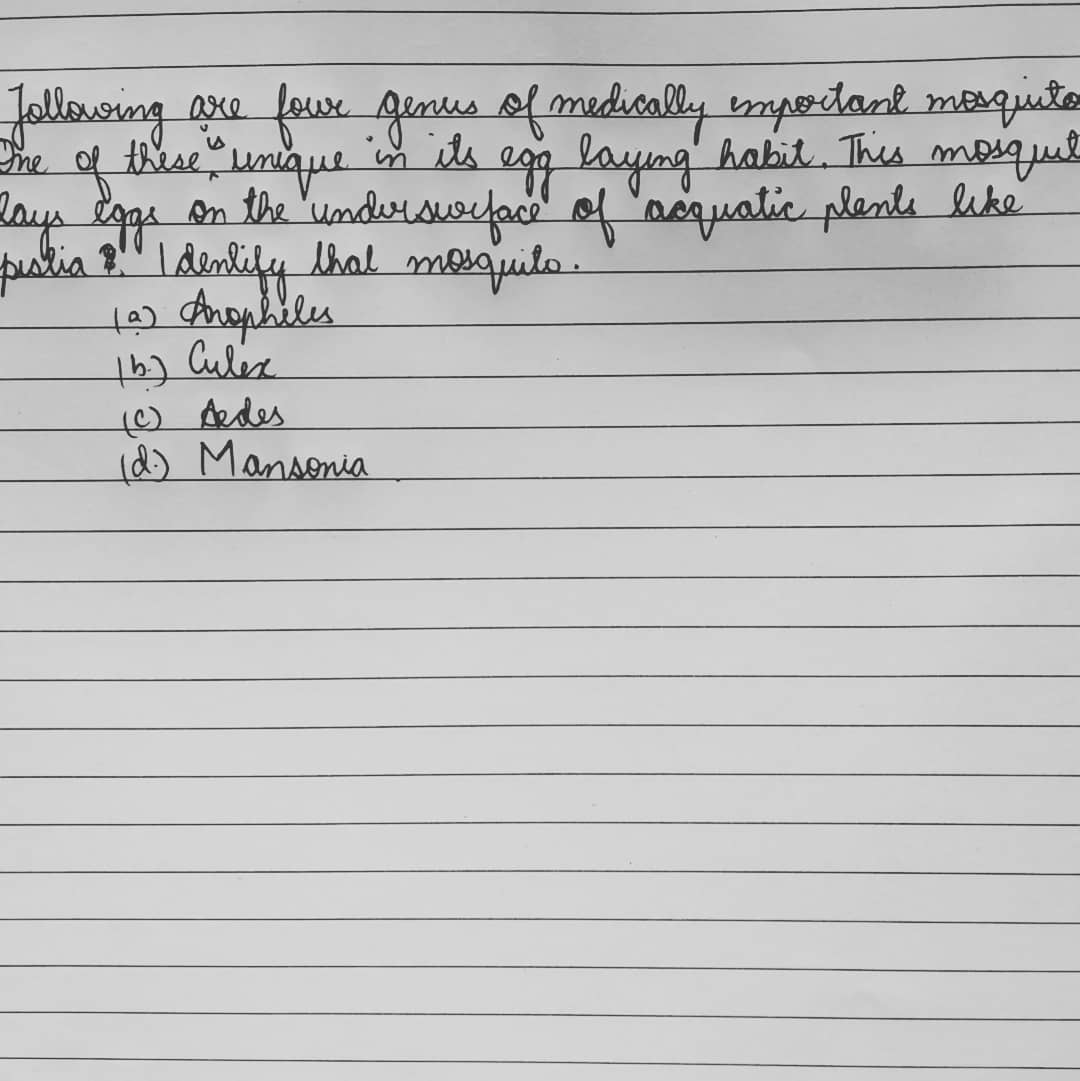 Following are four genus of medically important mosquito
One of these is unique in its egg laying habit. This mosquit
lays eggs on the undersurface of acquatic plants like
pistia. Identify that mosquito.
(a) Anopheles
(b.) Culex
(c) Aedes
(d.) Mansonia